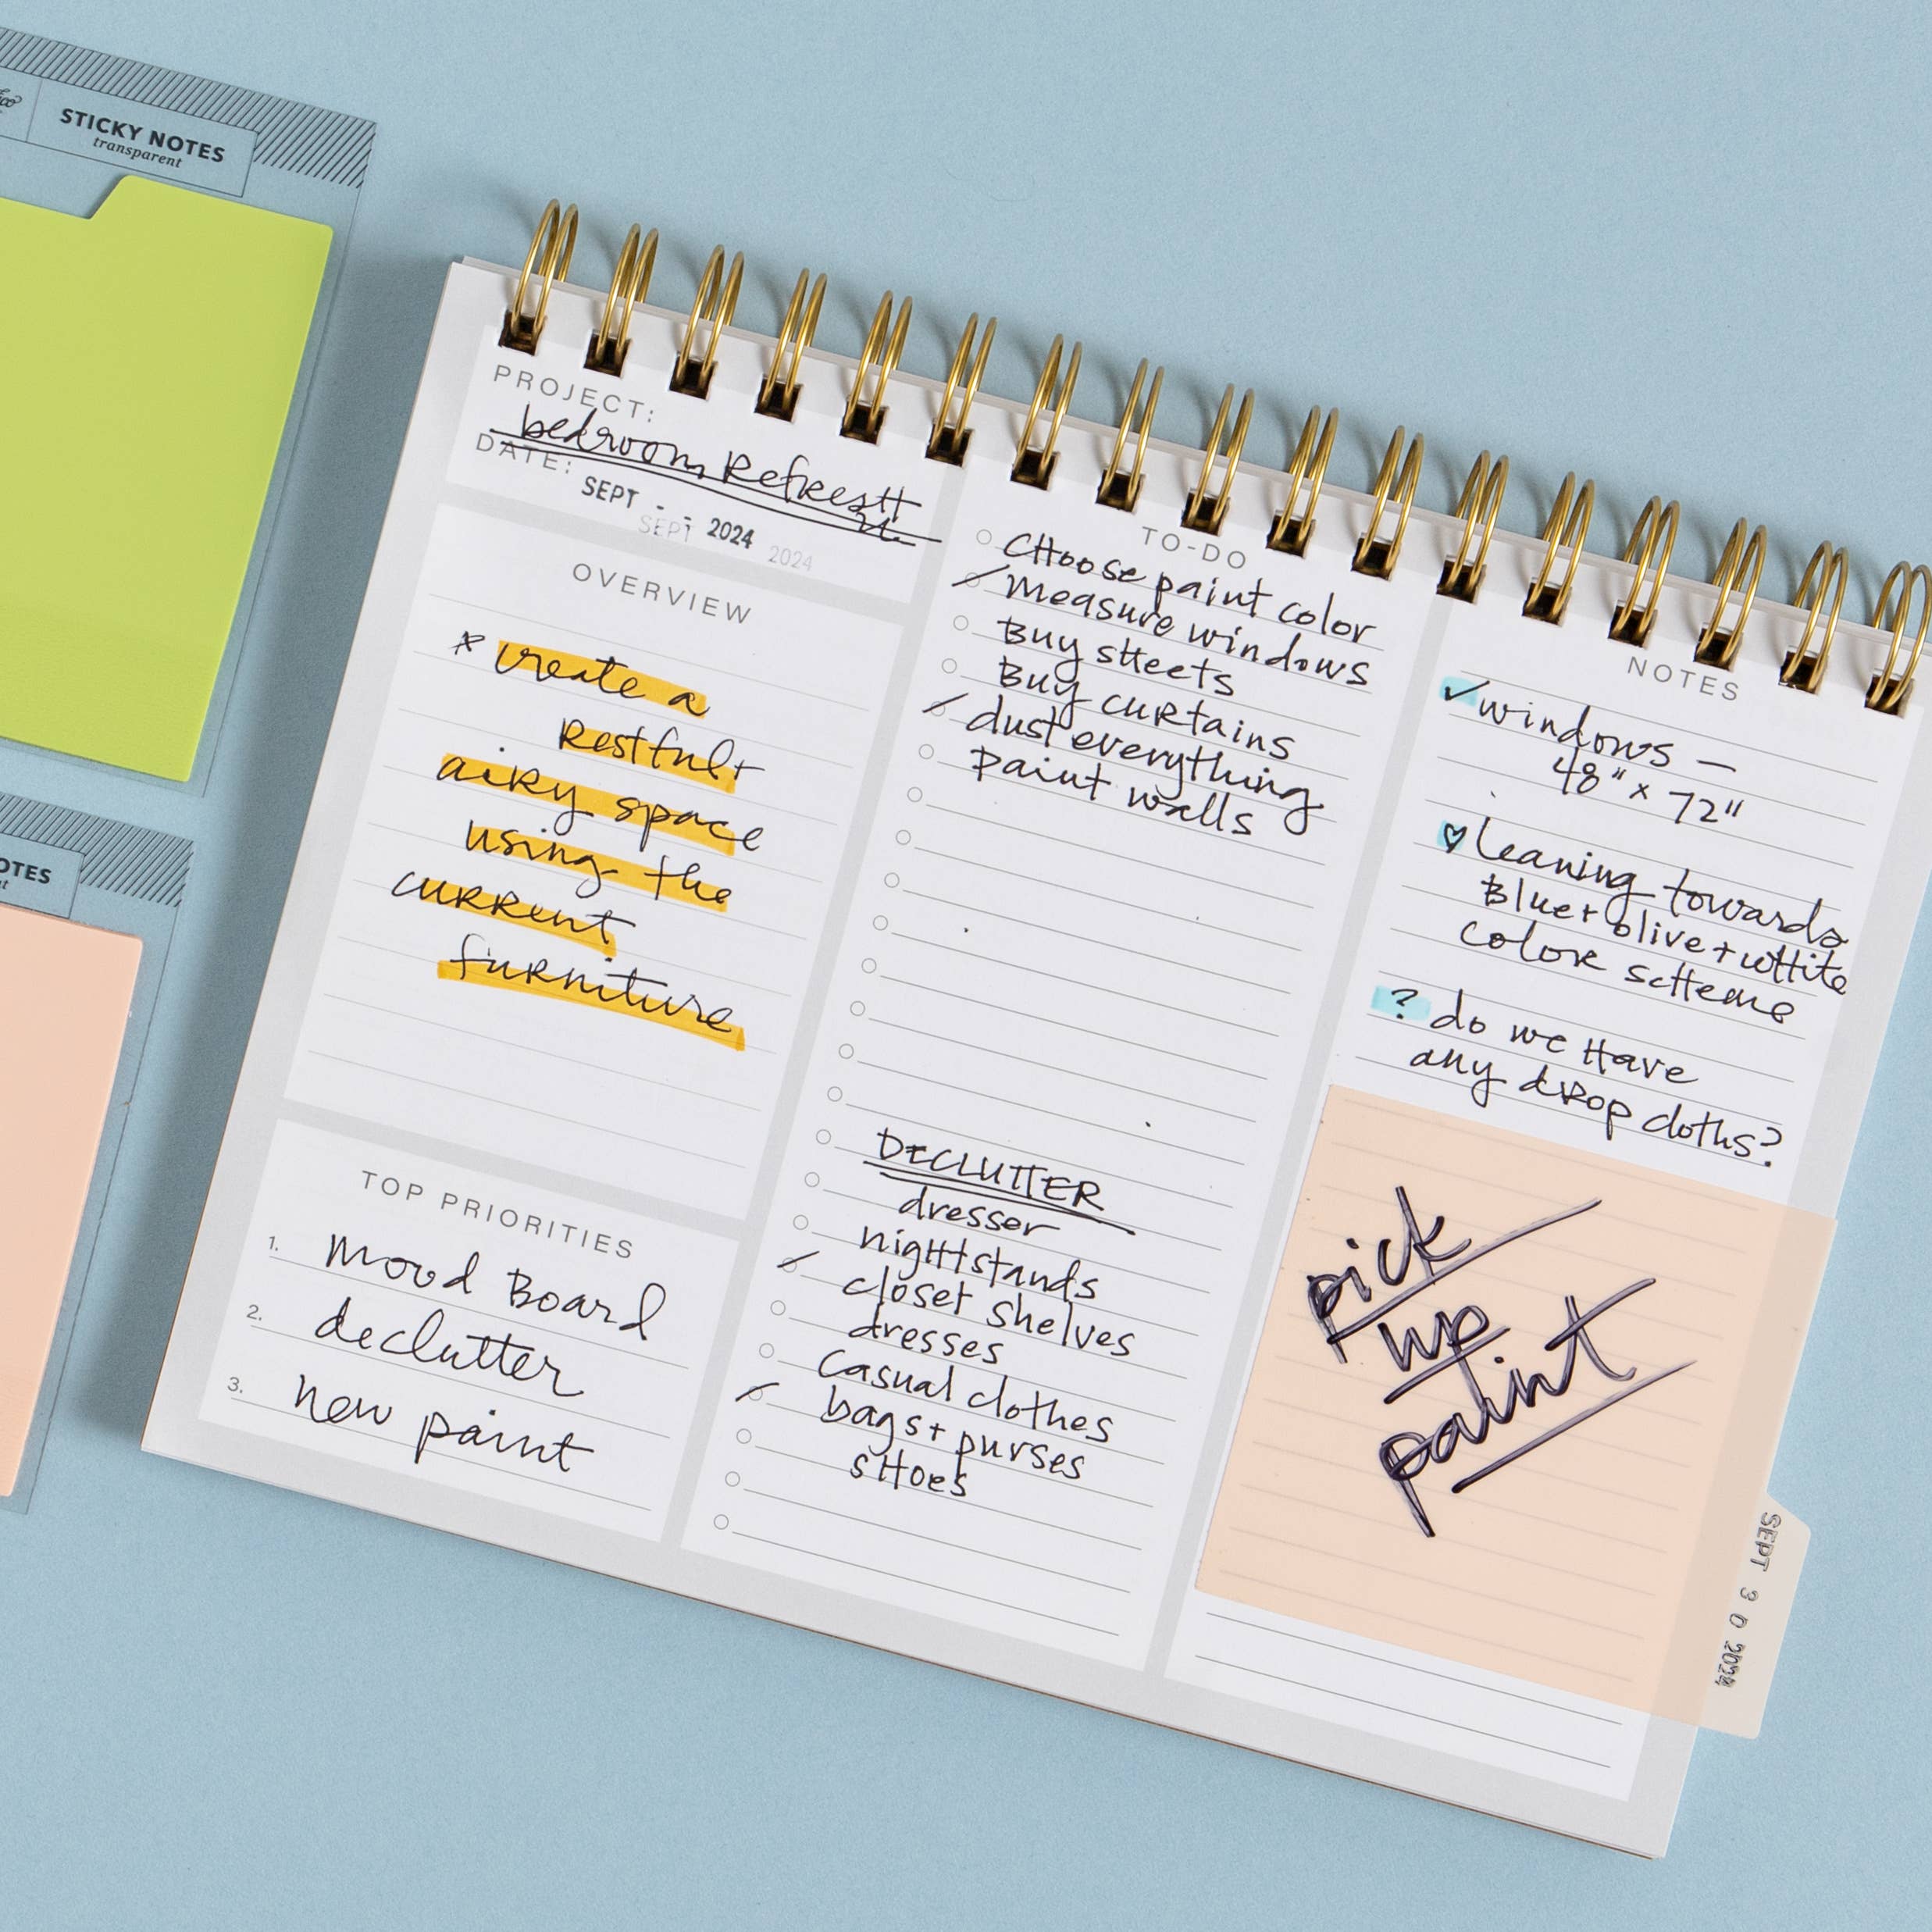 STICKY NOTES
transparent
OTES
PROJECT:
bedroom Refresh
DATE:
SEPT - - 2024
SEPT 2024
OVERVIEW
* create a
Restful +
airy space
using the
current
furniture
TOP PRIORITIES
1. Mood Board
2. declutter
3. new paint
TO-DO
CHoose paint color
Measure windows
Buy sheets
Buy curtains
dust everything
paint walls
DECLUTTER
dresser
nightstands
closet shelves
dresses
casual clothes
bags + purses
sHoes
NOTES
✓ windows —
48" x 72"
♡ leaning towards
Blue + olive + white
color scheme
? do we Have
any drop cloths?
pick
up
paint
SEPT 3 0 2024